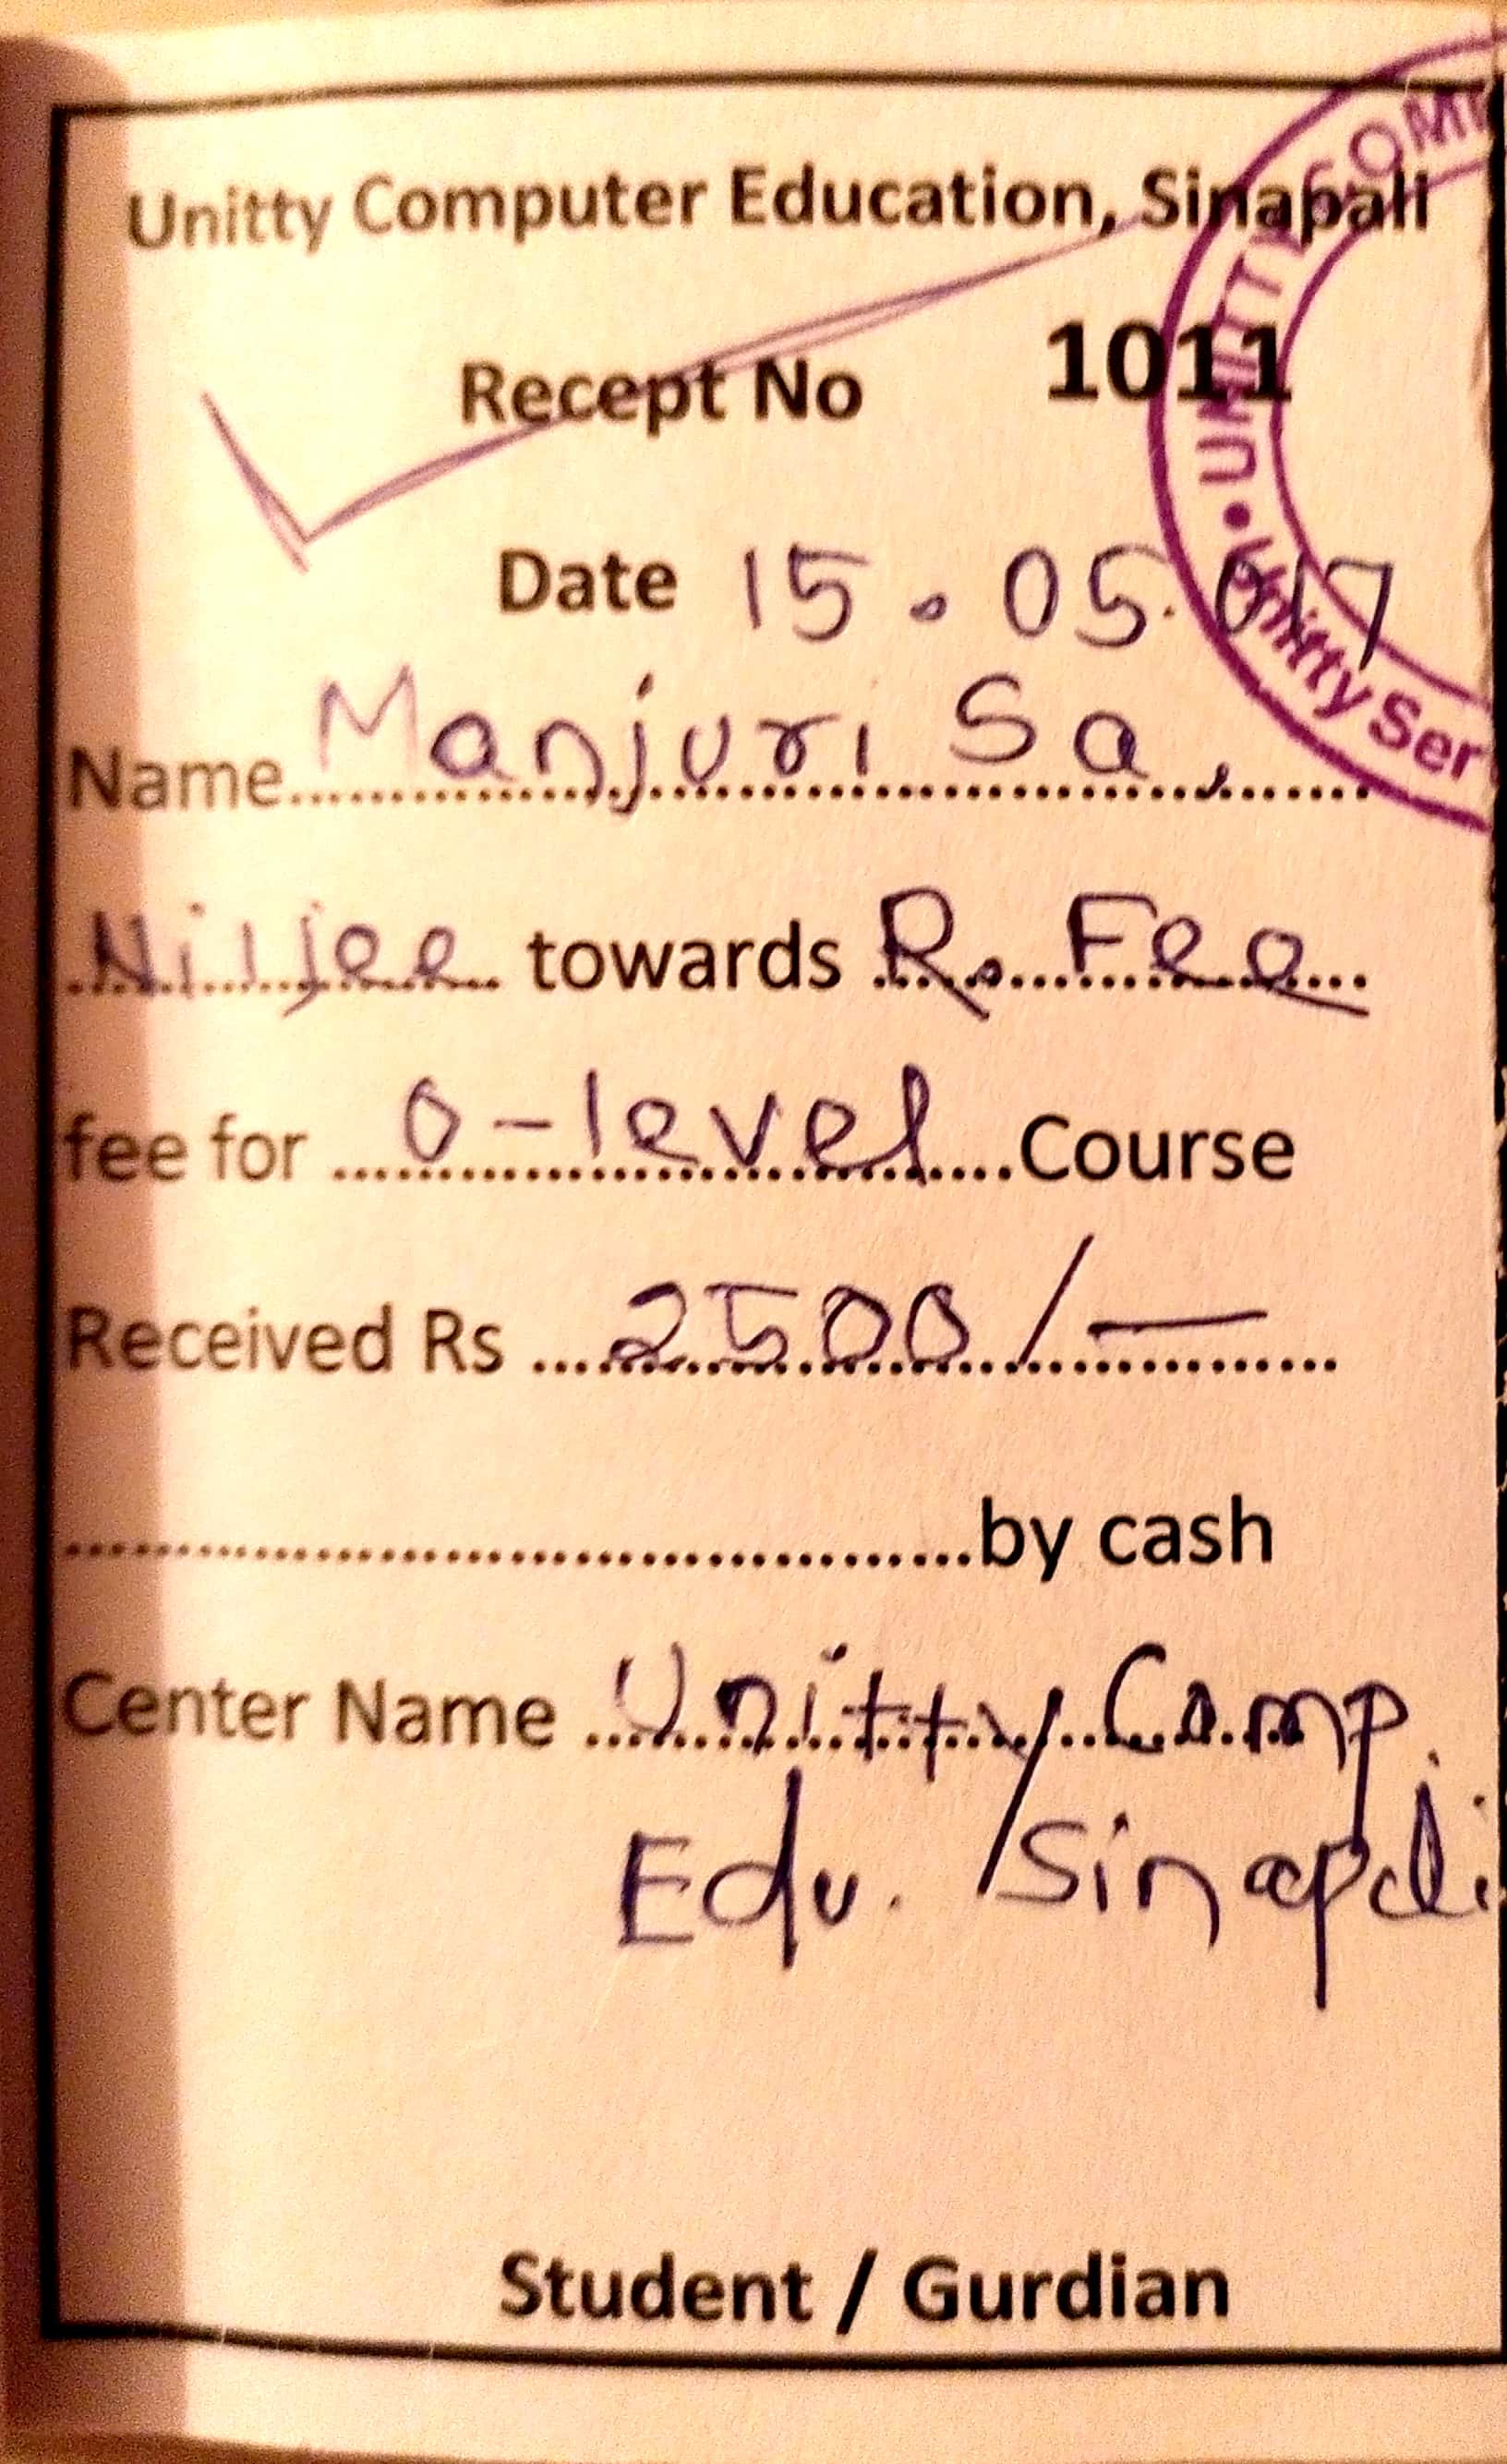 Unitty Computer Education, Sinapali
Recept No 1011
Date 15.05.017
Name Manjuri Sa,
Niljee towards R. Fee
fee for O-level Course
Received Rs 2500/-
by cash
Center Name Unitty Comp.
Edu. Sinapali
Student / Gurdian
UNITTY COM
Unitty Ser